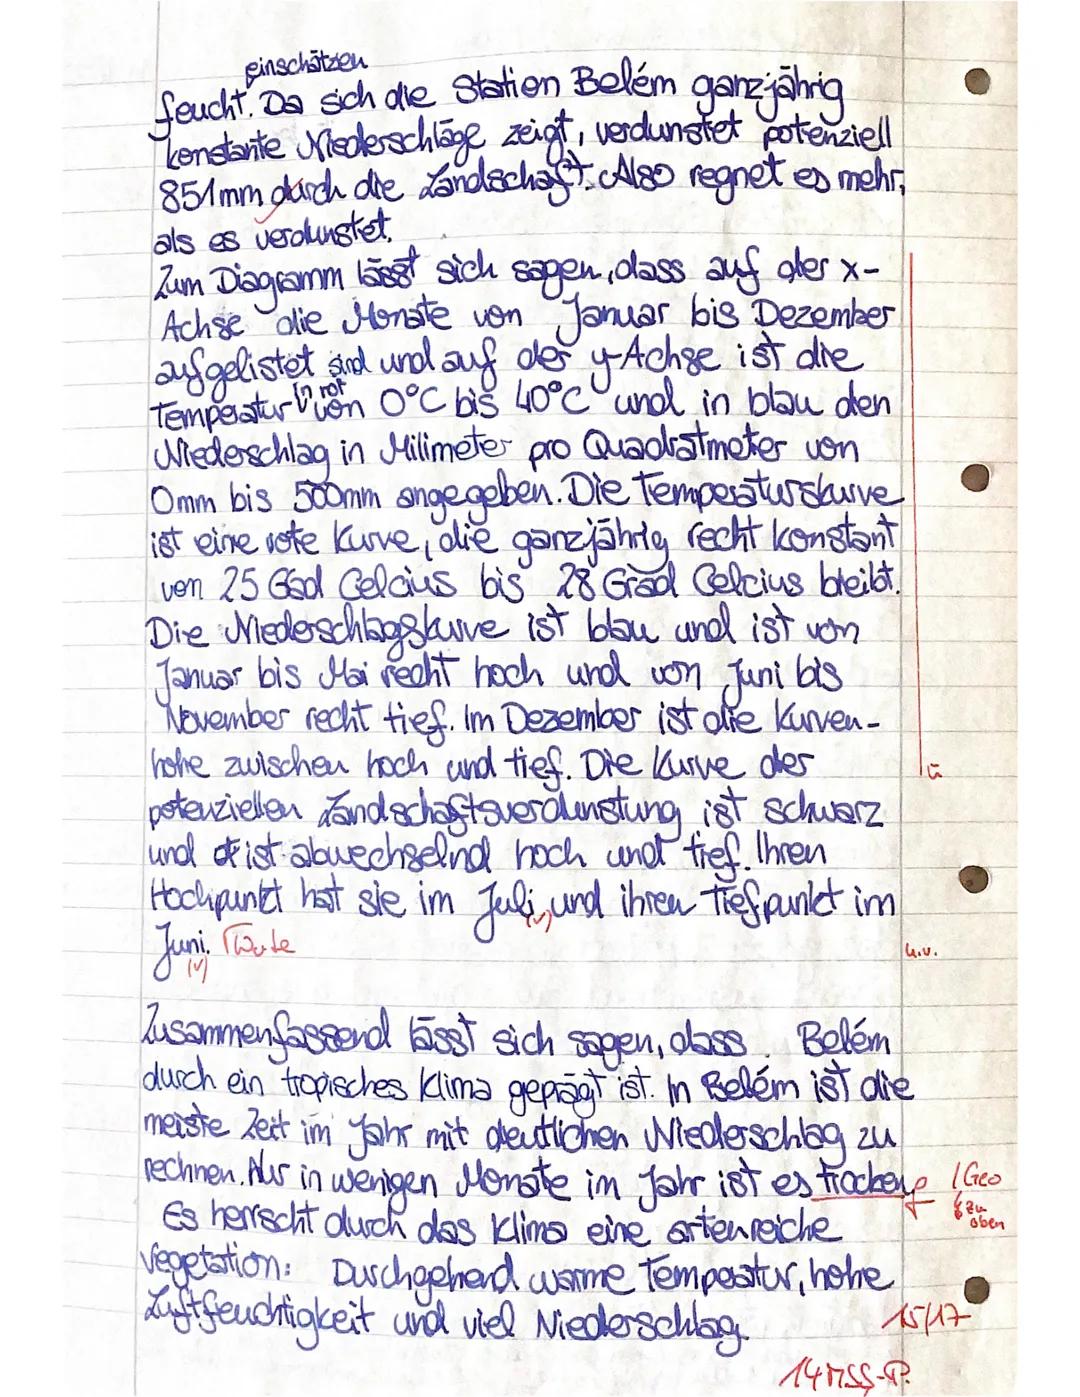 einschätzen
feucht. Da sich die Station Belém ganzjährig
konstante Niederschläge zeigt, verdunstet potenziell
851mm durch die Landschaft. Also regnet es mehr,
als es verdunstet.
Zum Diagramm lässt sich sagen, dass auf der x-
Achse die Monate von Januar bis Dezember
aufgelistet sind und auf der y-Achse ist die
in rot
Temperatur von 0°C bis 40°C und in blau den
Niederschlag in Milimeter pro Quadratmeter von
0mm bis 500mm angegeben. Die Temperaturskurve
ist eine rote Kurve, die ganzjährig recht konstant
von 25 Grad Celcius bis 28 Grad Celcius bleibt.
Die Niederschlagskurve ist blau und ist von
Januar bis Mai recht hoch und von Juni bis
November recht tief. Im Dezember ist die Kurven-
höhe zwischen hoch und tief. Die Kurve der
ü
potenziellen Landschaftsverdunstung ist schwarz
und ist abwechselnd hoch und tief. Ihren
Hochpunkt hat sie im Juli, und ihren Tiefpunkt im
(v)
Juni. Γ Werte
u.v.
(v)
Zusammenfassend lässt sich sagen, dass Belém
durch ein tropisches Klima geprägt ist. In Belém ist die
meiste Zeit im Jahr mit deutlichen Niederschlag zu
rechnen. Nur in wenigen Monate im Jahr ist es trocken. f /Geo
zu
oben
Es herrscht durch das Klima eine artenreiche
Vegetation: Durchgehend warme Temperatur, hohe
Luftfeuchtigkeit und viel Niederschlag.
15/17
14 MSS-P.